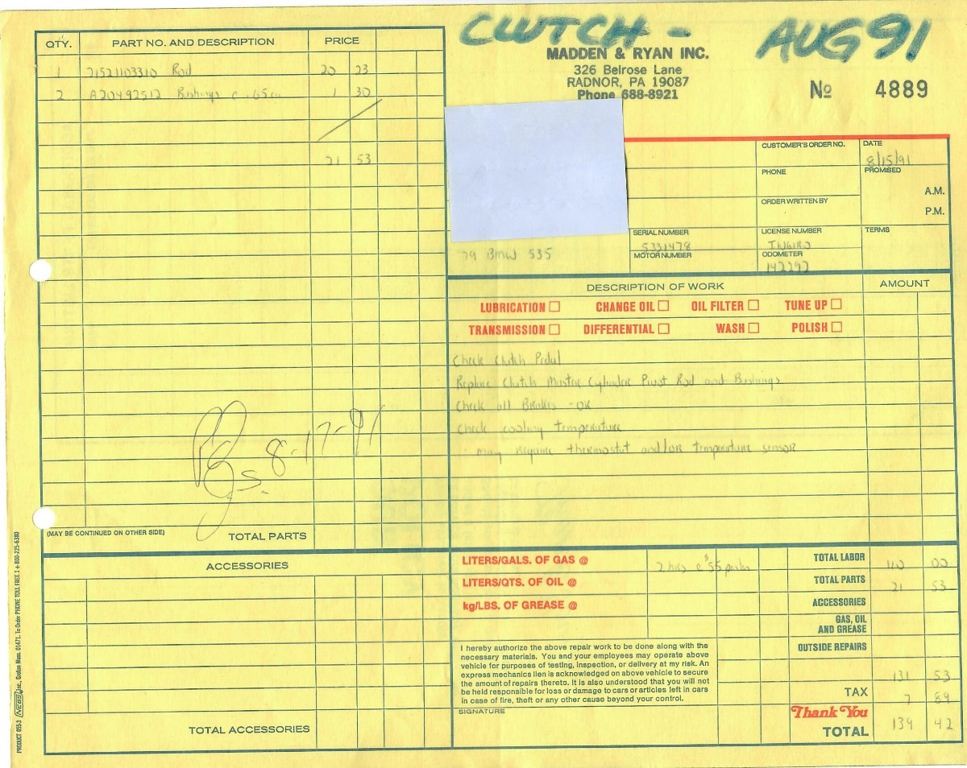 CLUTCH - AUG 91
MADDEN & RYAN INC.
326 Belrose Lane
RADNOR, PA 19087
Phone 688-8921
No 4889
QTY. PART NO. AND DESCRIPTION PRICE
1 21521103310 Rod 20 23
2 A20492512 Bushings @ .65 1 30
21 53
CUSTOMER'S ORDER NO. DATE
8/15/91
PHONE PROMISED
A.M.
ORDER WRITTEN BY
P.M.
SERIAL NUMBER LICENSE NUMBER TERMS
5331478
MOTOR NUMBER ODOMETER
79 BMW 535 142292
DESCRIPTION OF WORK AMOUNT
LUBRICATION CHANGE OIL OIL FILTER TUNE UP
TRANSMISSION DIFFERENTIAL WASH POLISH
Check Clutch Pedal
Replace Clutch Master Cylinder Pivot Rod and Bushings
Check all Brakes - OK
Check cooling temperature
- may require thermostat and/or temperature sensor
8-17-91
(MAY BE CONTINUED ON OTHER SIDE) TOTAL PARTS
ACCESSORIES
TOTAL ACCESSORIES
LITERS/GALS. OF GAS @ 2 hrs @ $55 per hr TOTAL LABOR 110 00
LITERS/QTS. OF OIL @ TOTAL PARTS 21 53
kg/LBS. OF GREASE @ ACCESSORIES
GAS, OIL
AND GREASE
OUTSIDE REPAIRS
I hereby authorize the above repair work to be done along with the
necessary materials. You and your employees may operate above
vehicle for purposes of testing, inspection, or delivery at my risk. An
express mechanics lien is acknowledged on above vehicle to secure
the amount of repairs thereto. It is also understood that you will not
be held responsible for loss or damage to cars or articles left in cars
in case of fire, theft or any other cause beyond your control.
131 53
TAX 7 89
SIGNATURE
Thank You
TOTAL 139 42
PRODUCT 655-3 NEBS Inc., Groton, Mass. 01471. To Order PHONE TOLL FREE 1+800-225-6380